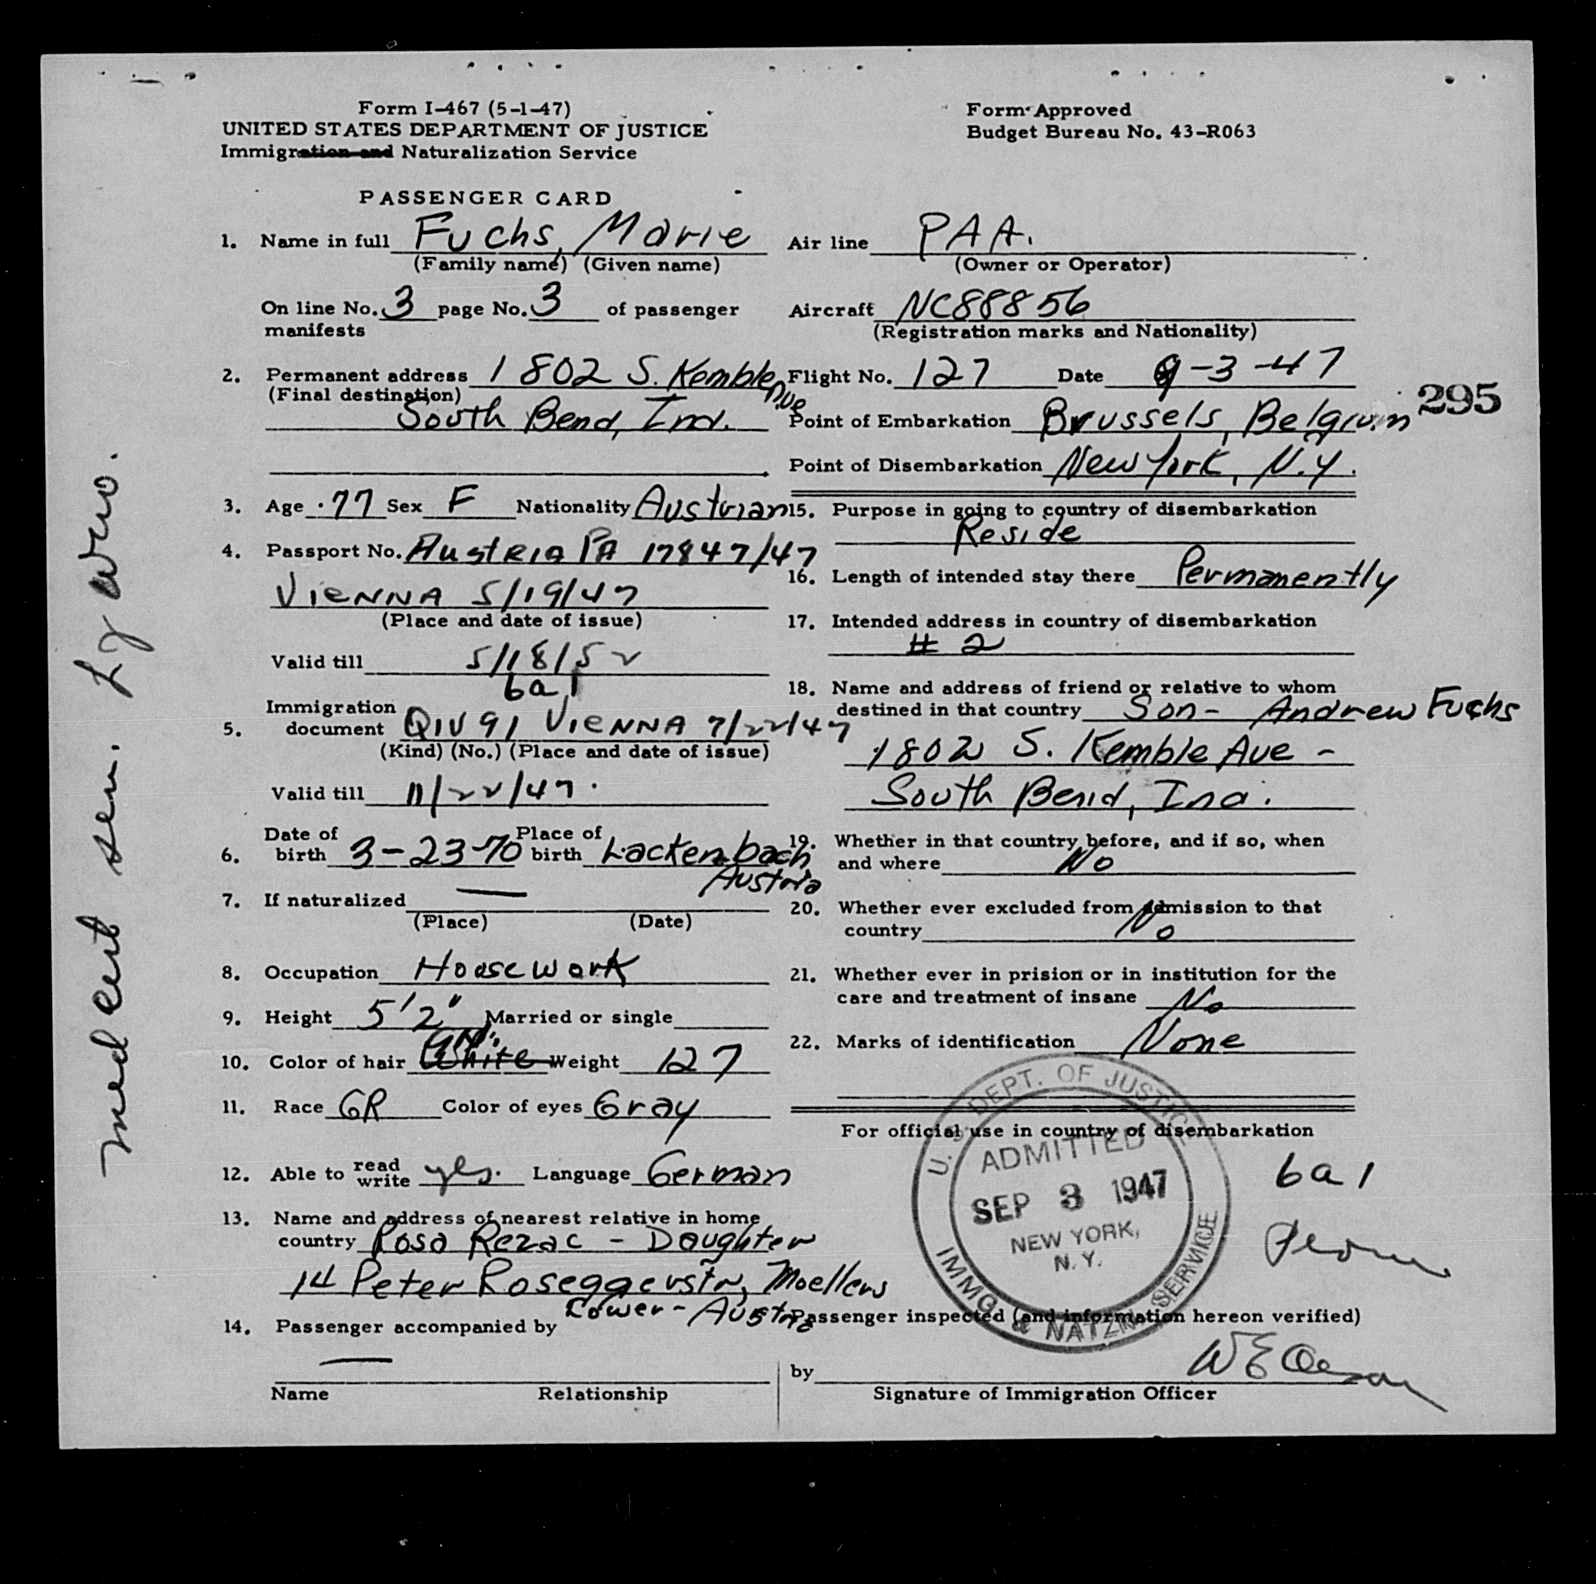 Form I-467 (5-1-47)
UNITED STATES DEPARTMENT OF JUSTICE
Immigration and Naturalization Service
Form Approved
Budget Bureau No. 43-R063
PASSENGER CARD
1. Name in full Fuchs, Marie
(Family name) (Given name)
On line No. 3 page No. 3 of passenger
manifests
2. Permanent address 1802 S. Kemble Ave
(Final destination)
South Bend, Ind.
3. Age 77 Sex F Nationality Austrian
4. Passport No. Austria PA 17847/47
Vienna 5/19/47
(Place and date of issue)
Valid till 5/18/52
6a1
Immigration
5. document QIV 91 Vienna 7/22/47
(Kind) (No.) (Place and date of issue)
Valid till 11/22/47.
Date of Place of
6. birth 3-23-70 birth Lackenbach
Austria
7. If naturalized —
(Place) (Date)
8. Occupation Housework
9. Height 5'2" Married or single
10. Color of hair White Weight 127
11. Race GR Color of eyes Gray
12. Able to read write yes. Language German
13. Name and address of nearest relative in home
country Rosa Rezac - Daughter
14 Peter Roseggerstr, Moellers
Lower-Austria
14. Passenger accompanied by
—
Name Relationship
Air line PAA.
(Owner or Operator)
Aircraft NC88856
(Registration marks and Nationality)
Flight No. 127 Date 9-3-47
295
Point of Embarkation Brussels, Belgium
Point of Disembarkation New York, N.Y.
15. Purpose in going to country of disembarkation
Reside
16. Length of intended stay there Permanently
17. Intended address in country of disembarkation
# 2
18. Name and address of friend or relative to whom
destined in that country Son - Andrew Fuchs
1802 S. Kemble Ave -
South Bend, Ind.
19. Whether in that country before, and if so, when
and where No
20. Whether ever excluded from admission to that
country No
21. Whether ever in prision or in institution for the
care and treatment of insane No
22. Marks of identification None
For official use in country of disembarkation
U.S. DEPT. OF JUSTICE
ADMITTED
SEP 3 1947
NEW YORK,
N.Y.
IMMG. & NATZN. SERVICE
6a1
Passenger inspected (and information hereon verified)
by
Signature of Immigration Officer
med cert sen.